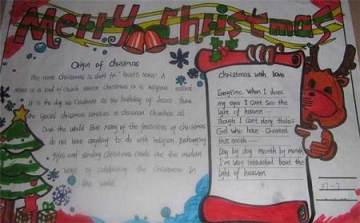 Merry Christmas
Origin of Christmas
The name Christmas is short for "Christ's Mass". A
Mass is a kind of church service. Christmas is a religious
It is the day we celebrate as the birthday of Jesus. There
are special Christmas services in Christian Churches all
Over the world. But many of the festivities of Christmas
do not have anything to do with religion. Exchanging
gifts and sending Christmas cards are the modern
ways of celebrating the Christmas in
the world.
Christmas with love
Everytime When I does
my eyes I can't see the
light of heaven
Though I can't deny
God who has created
this
Day by day month by month
I'm very about the
light of heaven